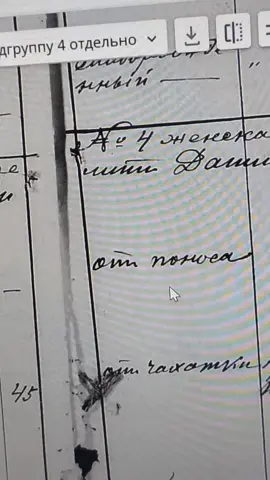 дгруппу 4 отдельно
нный —
№ 4 женска
от поноса
от чахотки
45